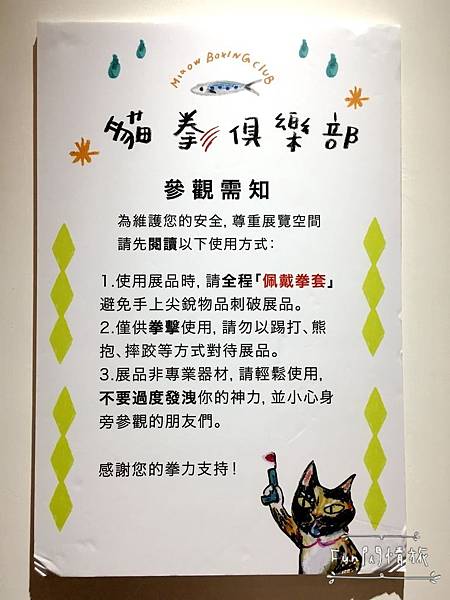 MEOW BOXING CLUB
貓拳俱樂部
參觀需知
為維護您的安全,尊重展覽空間
請先閱讀以下使用方式:
1.使用展品時,請全程「佩戴拳套」
避免手上尖銳物品刺破展品。
2.僅供拳擊使用,請勿以踢打、熊
抱、摔跤等方式對待展品。
3.展品非專業器材,請輕鬆使用,
不要過度發洩你的神力,並小心身
旁參觀的朋友們。
感謝您的拳力支持!